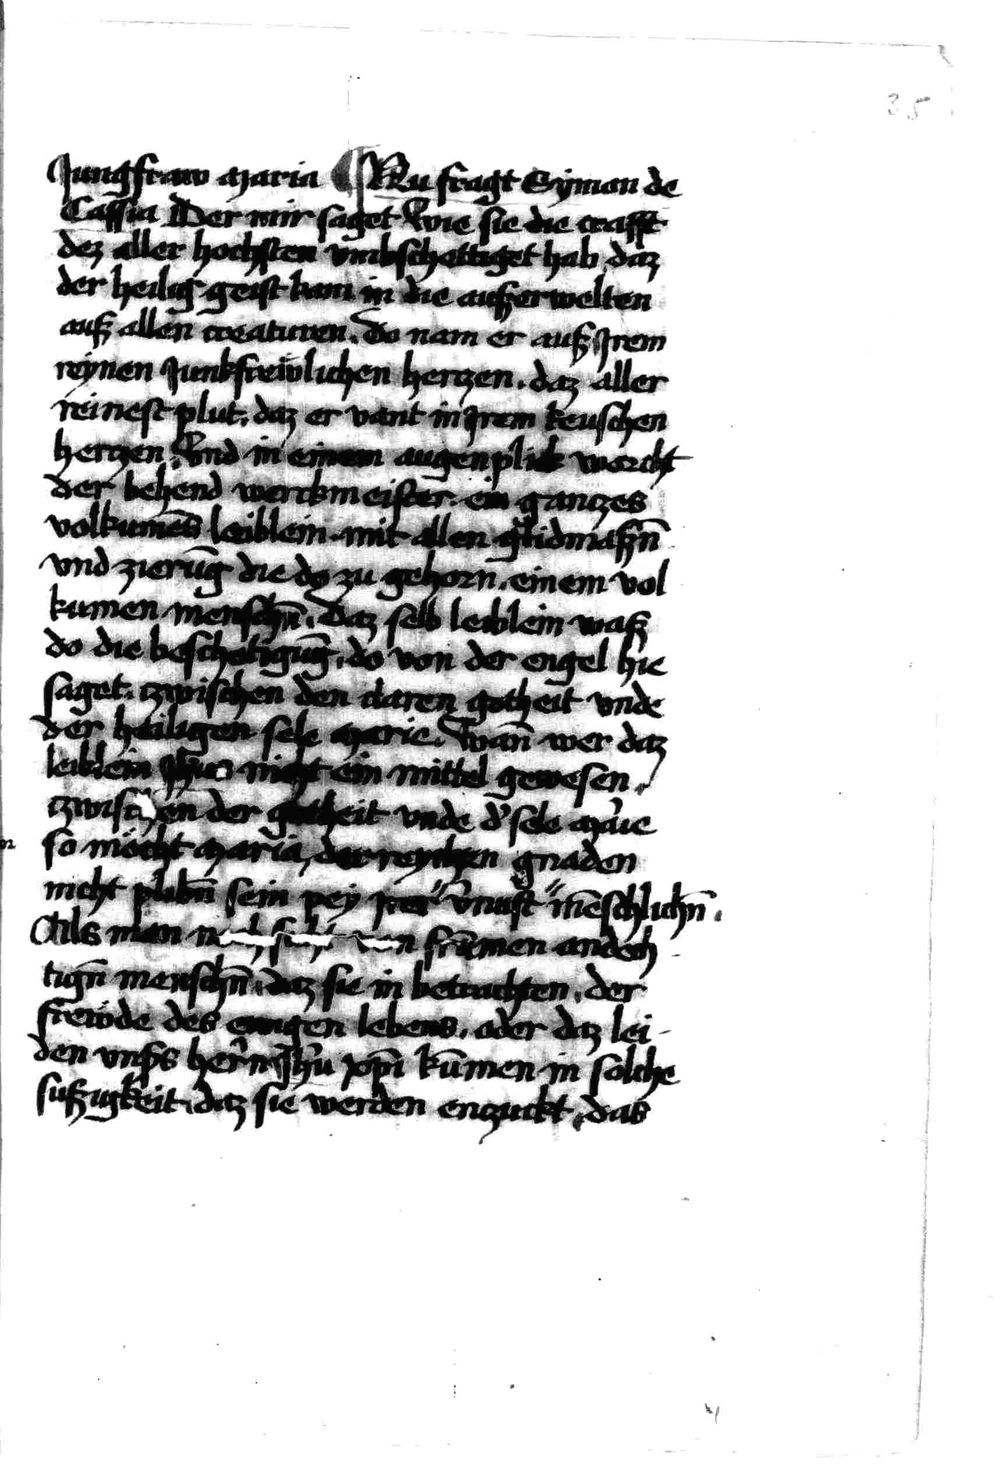 35
Jungfraw maria ¶ Nu fragt Symon de
Cassia Der mir saget Wie sie die crafft
dez aller hochsten vmbschettiget hab daz
der heilig geist kam in die außerwelten
auß allen creaturen. do nam er auß Jrem
reynen Junkfrewlichen hertzen. daz aller
reinest plut. daz er vant in Jrem keuschen
hertzen. Vnd in einem augenplick worcht
der behend werckmeister. ein gantzes
volkumēs leiblein. mit allen glidmaßn̄
vnd zierūg die do zu gehorn. einem vol
kumen menschn̄. Daz selb leiblein waß
do die beschetigūg. do von der engel hie
saget. tzwischen den claren gotheit vnde
der heiligen sele marie. Wan̄ wer daz
leiblein Jhus nicht ein mittel gewesen.
tzwischen der gotheit vnde d' sele marie
so möcht maria, der reychen gnaden
nicht plibn̄ sein pey irer v̄nuft mēschlichn̄.
Als man von frūmen andech
tign̄ menschn̄. daz sie in betrachten. der
frewde des ewigen lebens. ader daz lei-
den vnsers hern̄ Jhū xp̄i kūmen in solche
sußigkeit. daz sie werden enczuckt. das